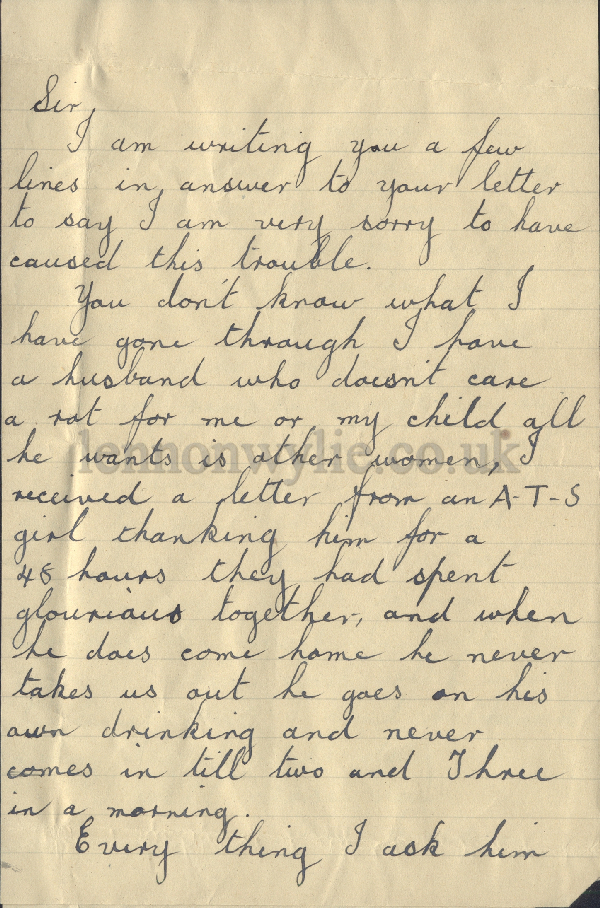 Sir,
I am writing you a few
lines in answer to your letter
to say I am very sorry to have
caused this trouble.
You don't know what I
have gone through I have
a husband who doesn't care
a rot for me or my child all
he wants is other women, I
lennonwylie.co.uk
received a letter from an A-T-S
girl thanking him for a
48 hours they had spent
glourious together, and when
he does come home he never
takes us out he goes on his
own drinking and never
comes in till two and Three
in a morning.
Every thing I ask him